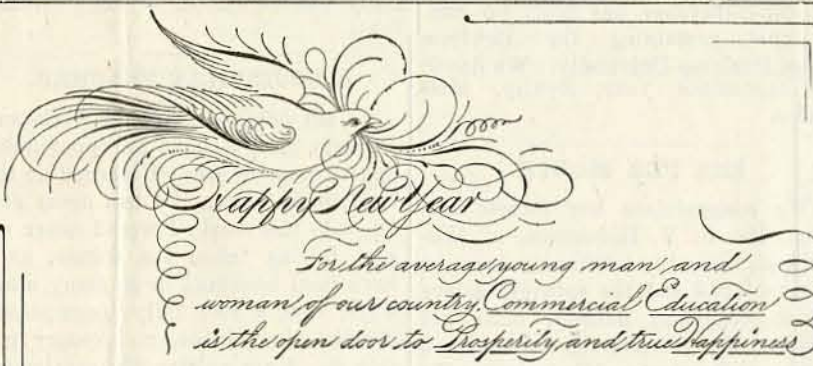 Happy New Year
For the average young man and
woman of our country, Commercial Education
is the open door to Prosperity and true Happiness